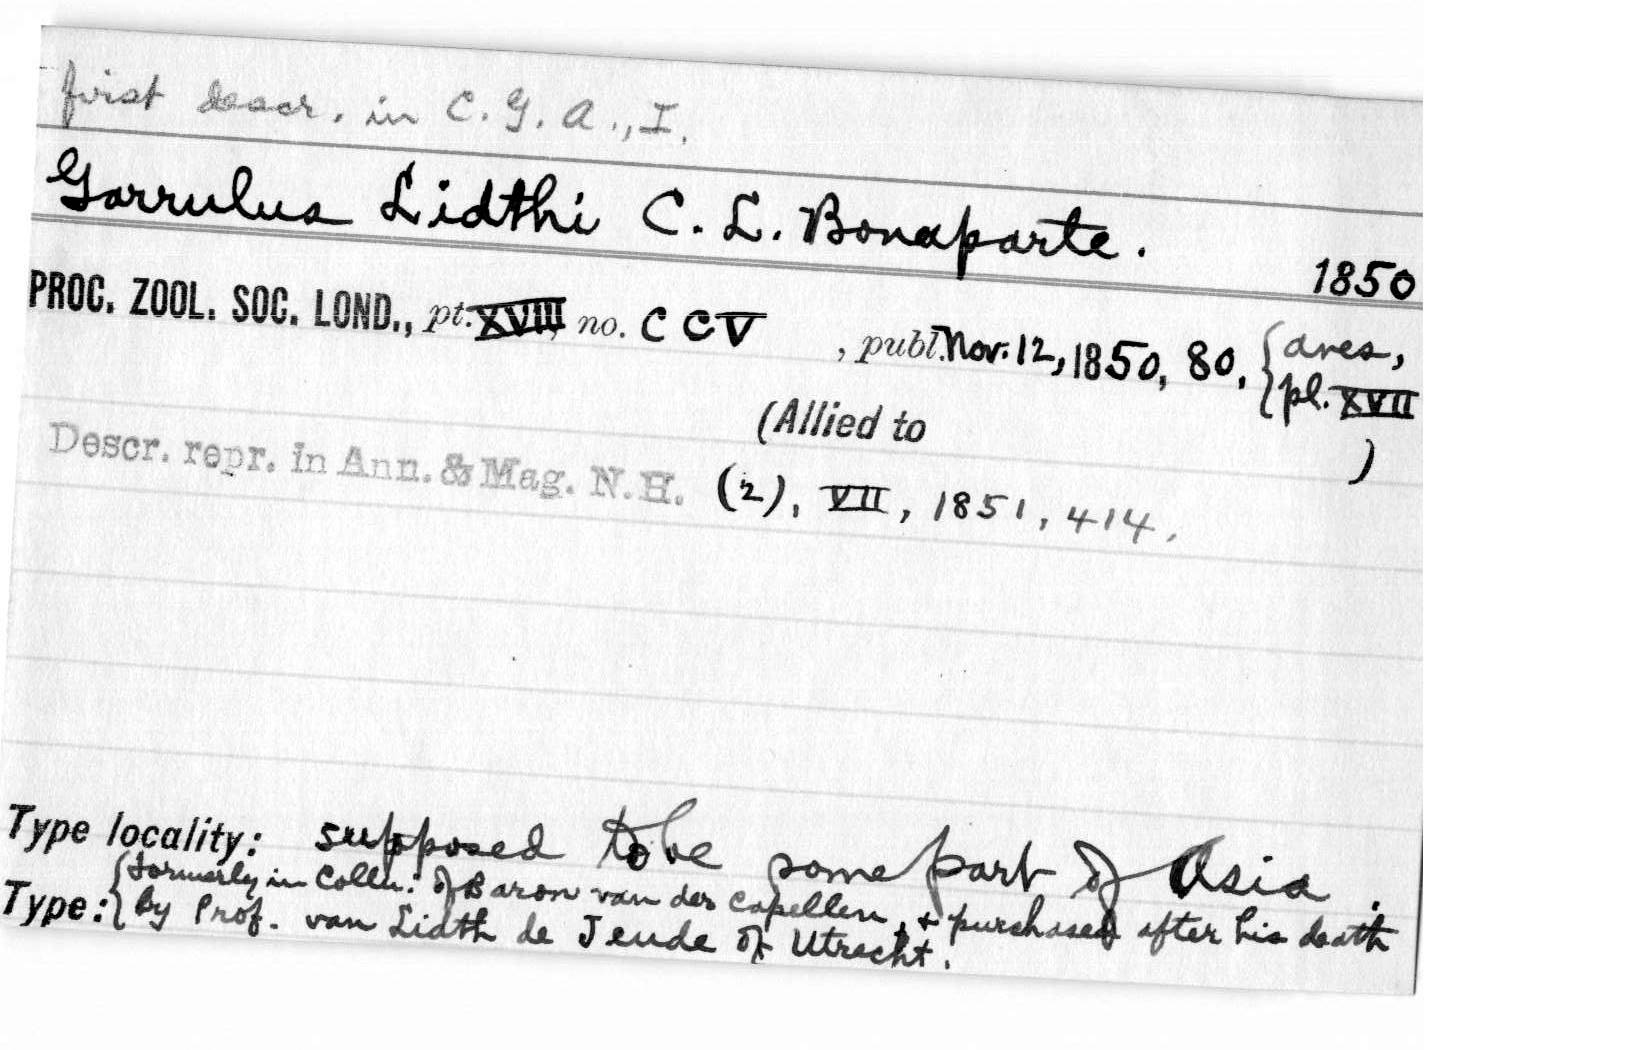 first descr. in C. G. A., I.
Garrulus Lidthi C. L. Bonaparte.
1850
PROC. ZOOL. SOC. LOND., pt. XVIII, no. CCV , publ. Nov. 12, 1850, 80, { aves, pl. XVII
(Allied to )
Descr. repr. in Ann. & Mag. N. H. (2), VII, 1851, 414.
Type locality: supposed to be some part of Asia.
Type: { formerly in Colln. of Baron van der Capellen, & purchased after his death
by Prof. van Lidth de Jeude of Utrecht.